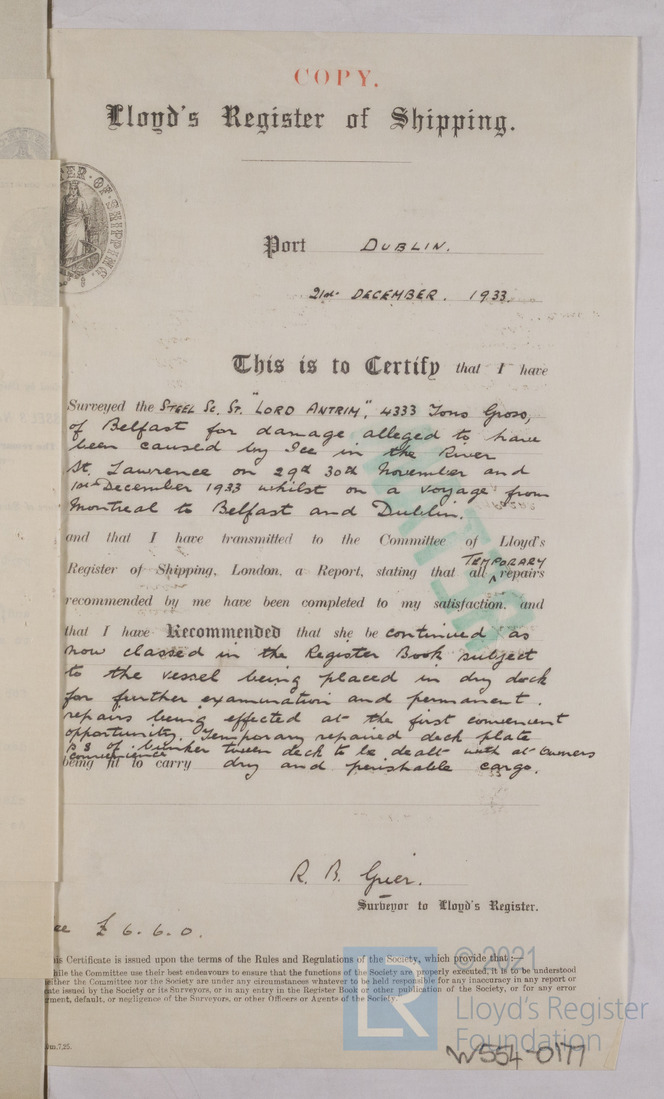 COPY.
Lloyd's Register of Shipping.
OF SHIPPING
Port DUBLIN.
21st DECEMBER. 1933.
This is to Certify that I have
Surveyed the STEEL Sc. Sr. "LORD ANTRIM", 4333 Tons Gross,
of Belfast for damage alleged to have
been caused by Ice in the River
St. Lawrence on 29th 30th November and
1st December 1933 whilst on a voyage from
Montreal to Belfast and Dublin.
and that I have transmitted to the Committee of Lloyd's
TEMPORARY
Register of Shipping, London, a Report, stating that all repairs
recommended by me have been completed to my satisfaction, and
that I have Recommended that she be continued as
now classed in the Register Book subject
to the vessel being placed in dry dock
for further examination and permanent
repairs being effected at the first convenient
opportunity. Temporary repaired deck plate
of bunker tween deck to be dealt with at Owners
convenience
being fit to carry dry and perishable cargo.
R. B. Grier.
Surveyor to Lloyd's Register.
£ 6. 6. 0.
is Certificate is issued upon the terms of the Rules and Regulations of the Society, which provide that :—
hile the Committee use their best endeavours to ensure that the functions of the Society are properly executed, it is to be understood
either the Committee nor the Society are under any circumstances whatever to be held responsible for any inaccuracy in any report or
ate issued by the Society or its Surveyors, or in any entry in the Register Book or other publication of the Society, or for any error
gment, default, or negligence of the Surveyors, or other Officers or Agents of the Society.
7.25.
LR
© 2021
Lloyd's Register
Foundation
W554-0177